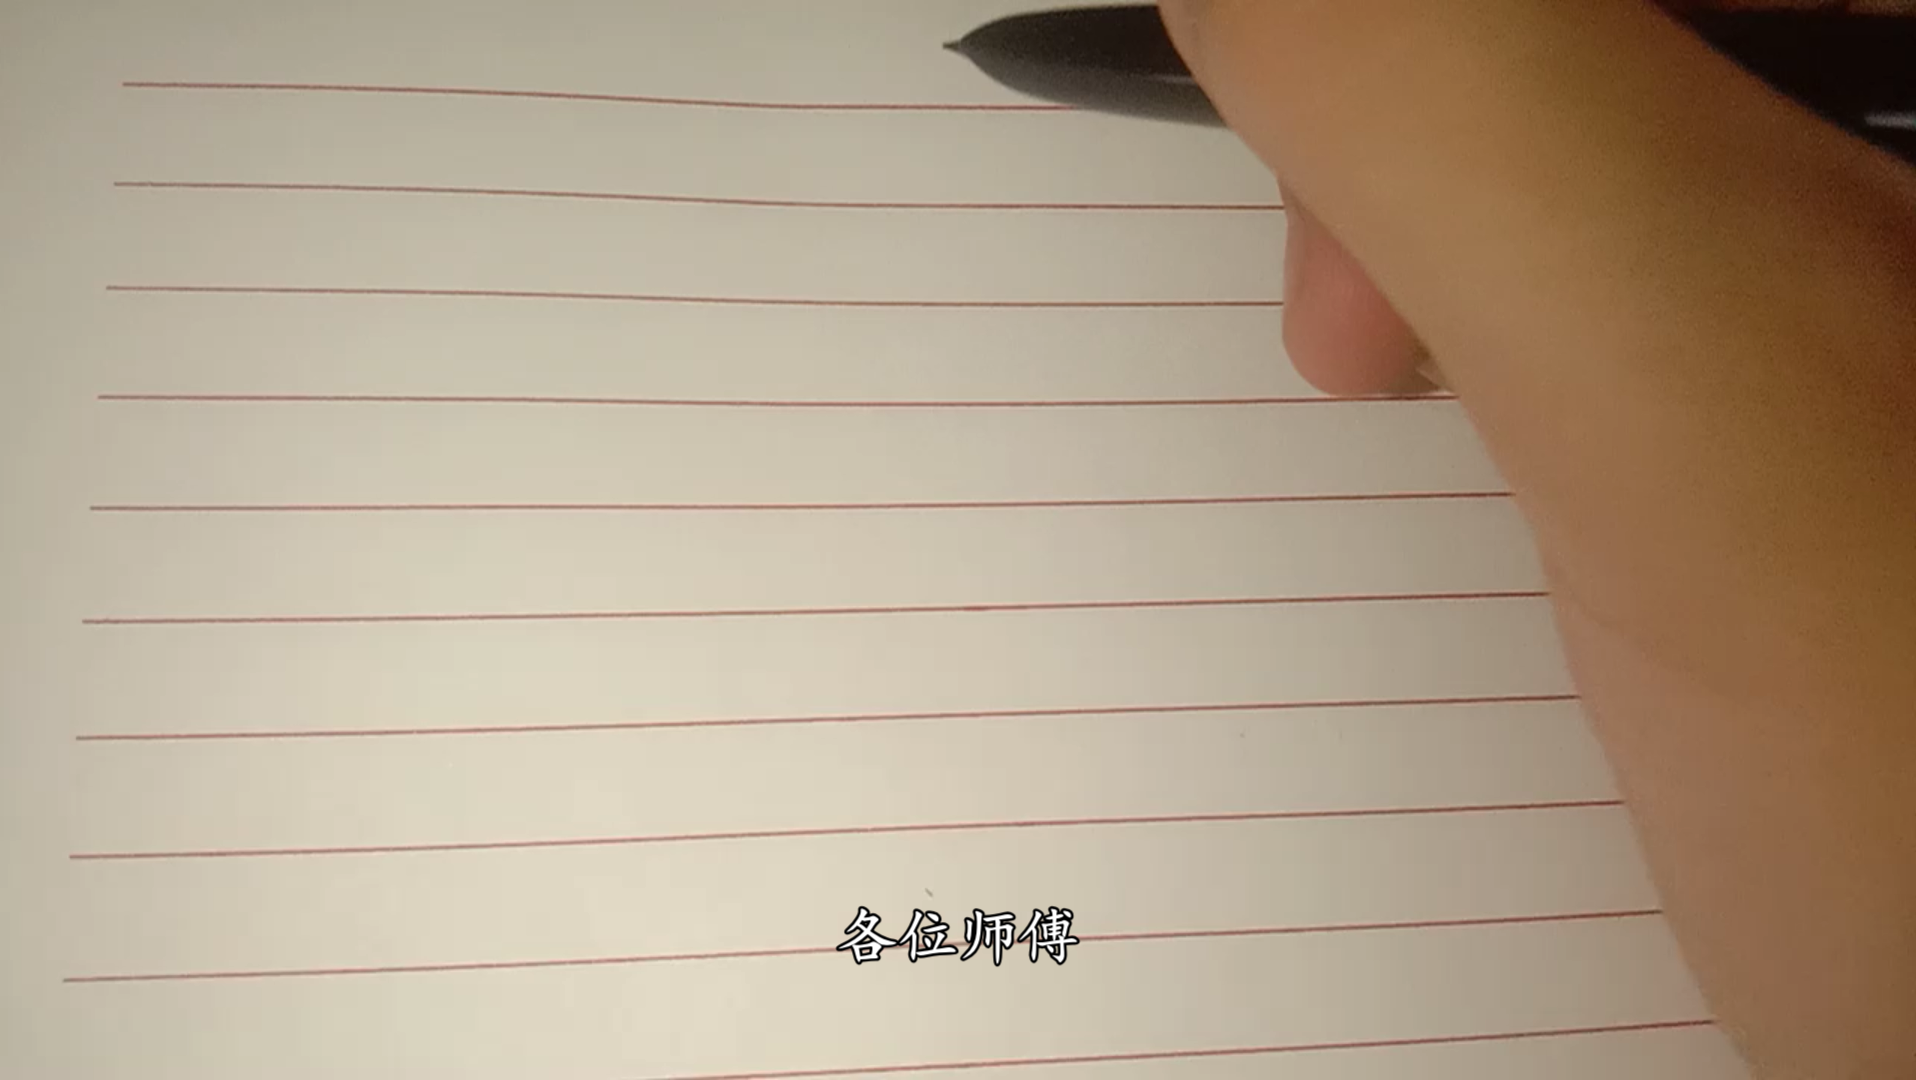 各位师傅